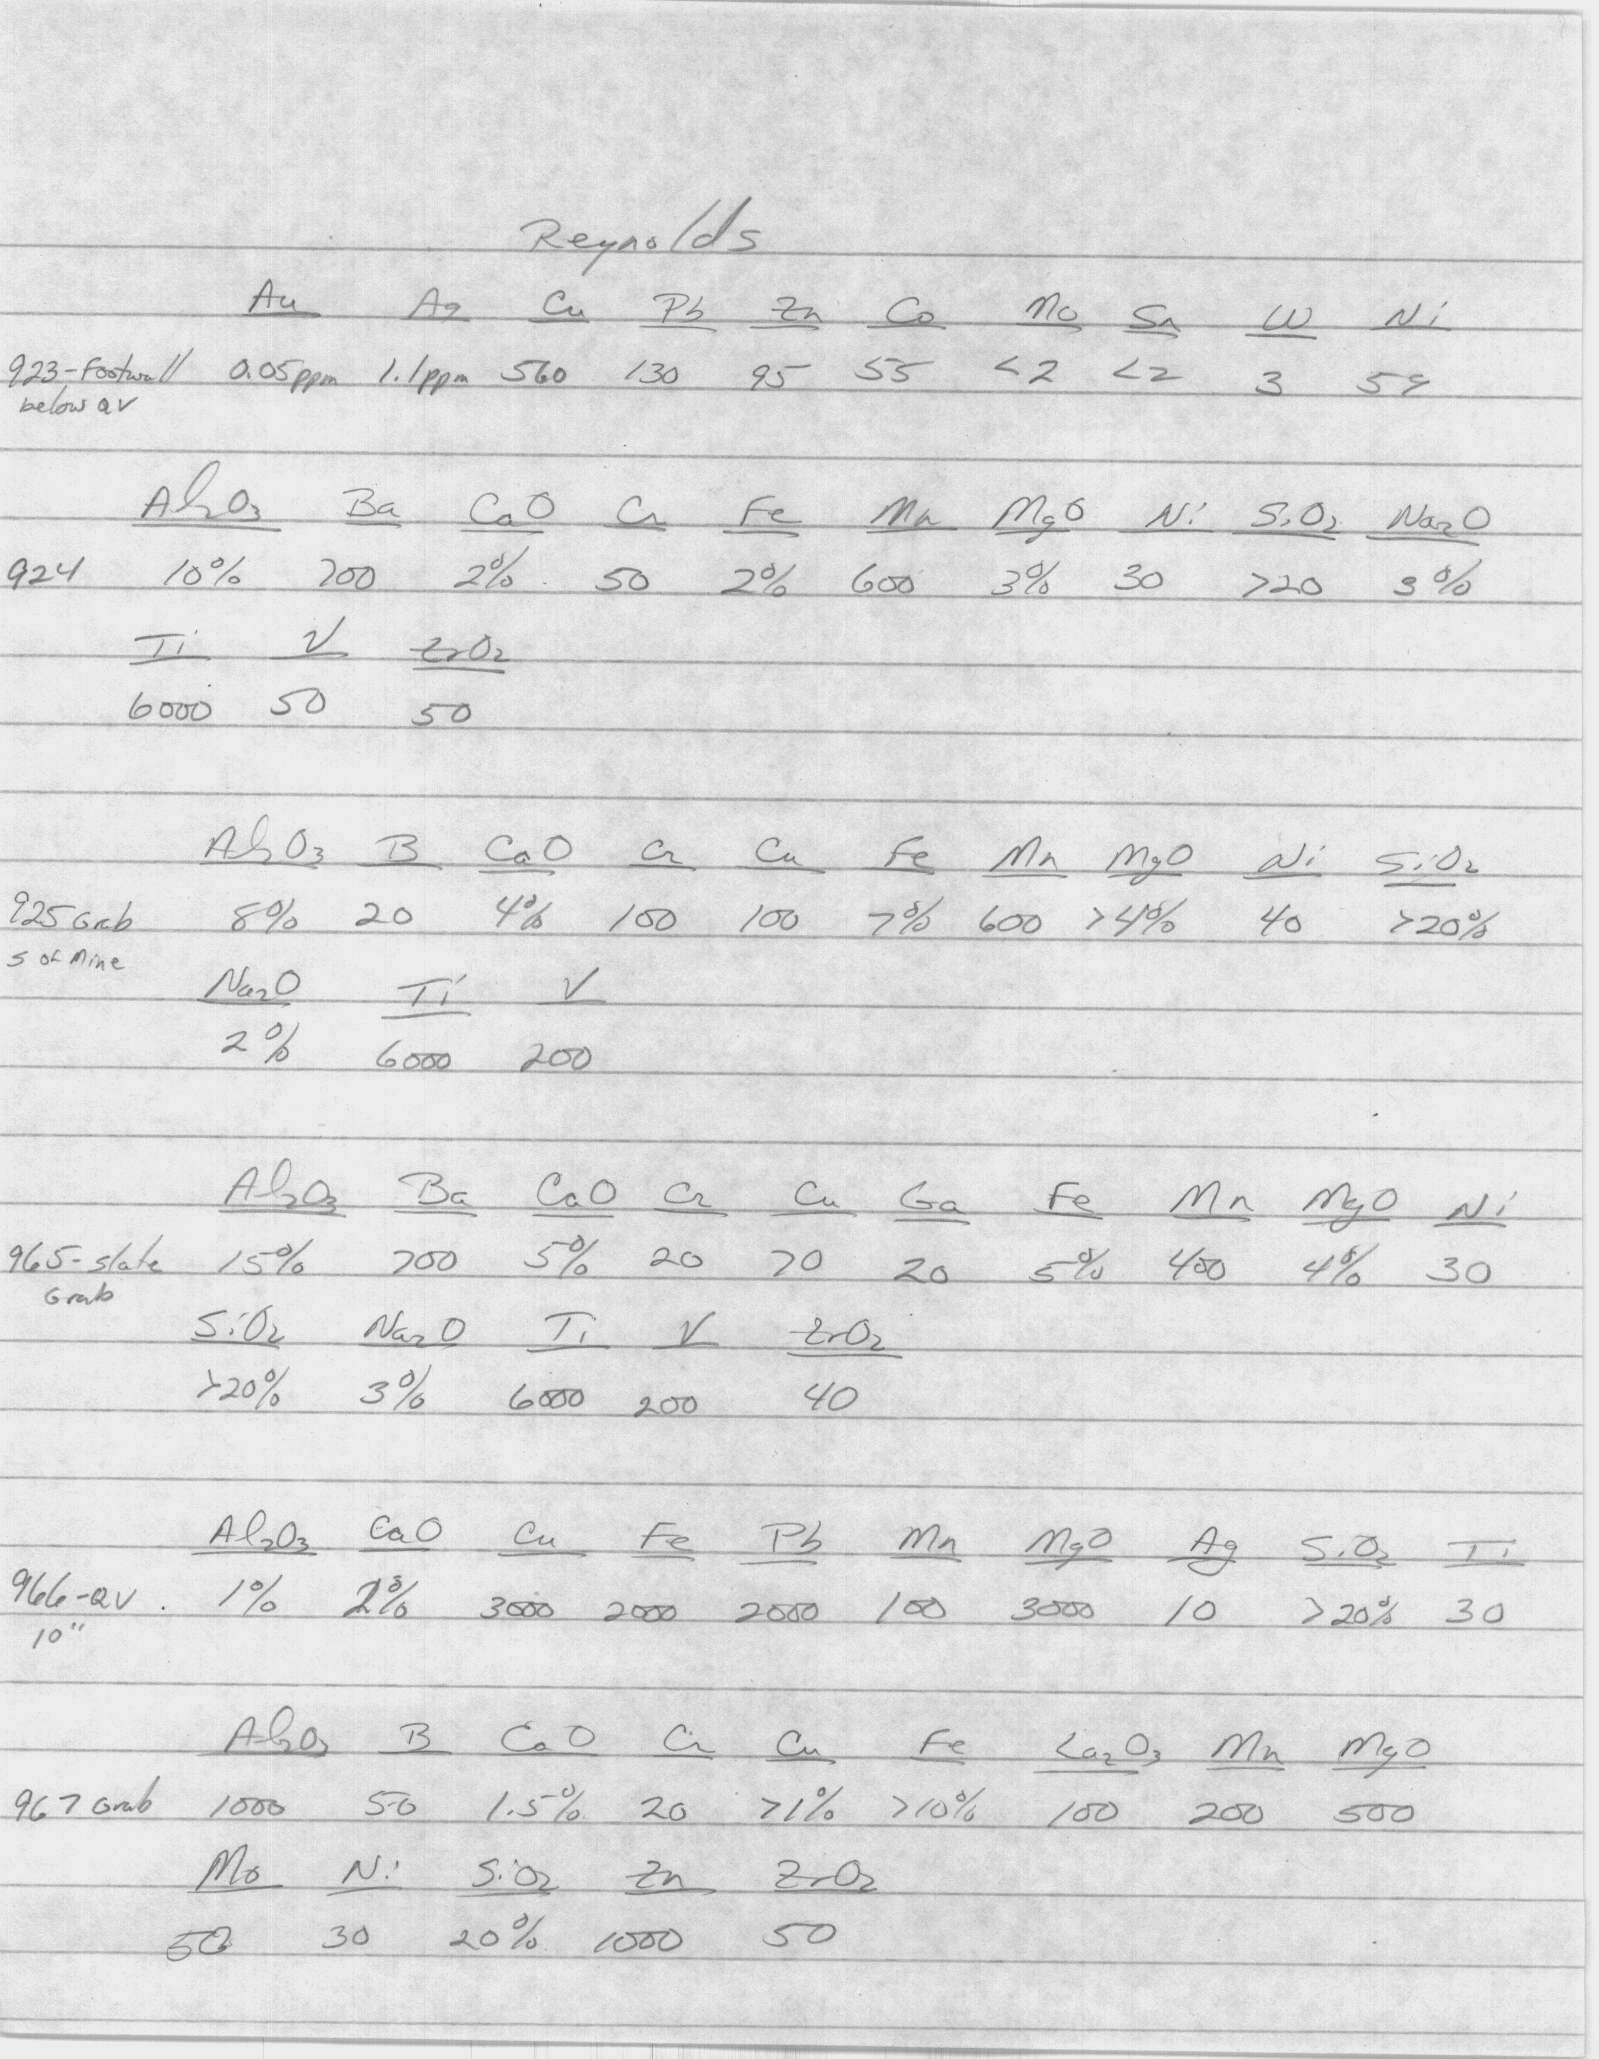 Reynolds
Au Ag Cu Pb Zn Co Mo Sn W Ni
923-Footwall 0.05ppm 1.1ppm 560 130 95 55 <2 <2 3 59
below QV
Al2O3 Ba CaO Cr Fe Mn MgO Ni SiO2 Na2O
924 10% 700 2% 50 2% 600 3% 30 >20 3%
Ti V ZrO2
6000 50 50
Al2O3 B CaO Cr Cu Fe Mn MgO Ni SiO2
925 Grab 8% 20 4% 100 100 7% 600 >4% 40 >20%
S of Mine
Na2O Ti V
2% 6000 200
Al2O3 Ba CaO Cr Cu Ga Fe Mn MgO Ni
965-slate 15% 700 5% 20 70 20 5% 400 4% 30
Grab
SiO2 Na2O Ti V ZrO2
>20% 3% 6000 200 40
Al2O3 CaO Cu Fe Pb Mn MgO Ag SiO2 Ti
966-QV 1% 2% 3000 2000 2000 100 3000 10 >20% 30
10"
Al2O3 B CaO Cr Cu Fe La2O3 Mn MgO
967 Grab 1000 50 1.5% 20 >1% >10% 100 200 500
Mo Ni SiO2 Zn ZrO2
50 30 20% 1000 50